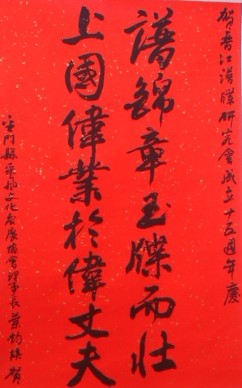 賀晉江譜牒研究會成立十五週年慶
譜錦章玉牒而壯
上國偉業於偉丈夫
金門縣宗族文化發展協會理事長葉鈞培賀